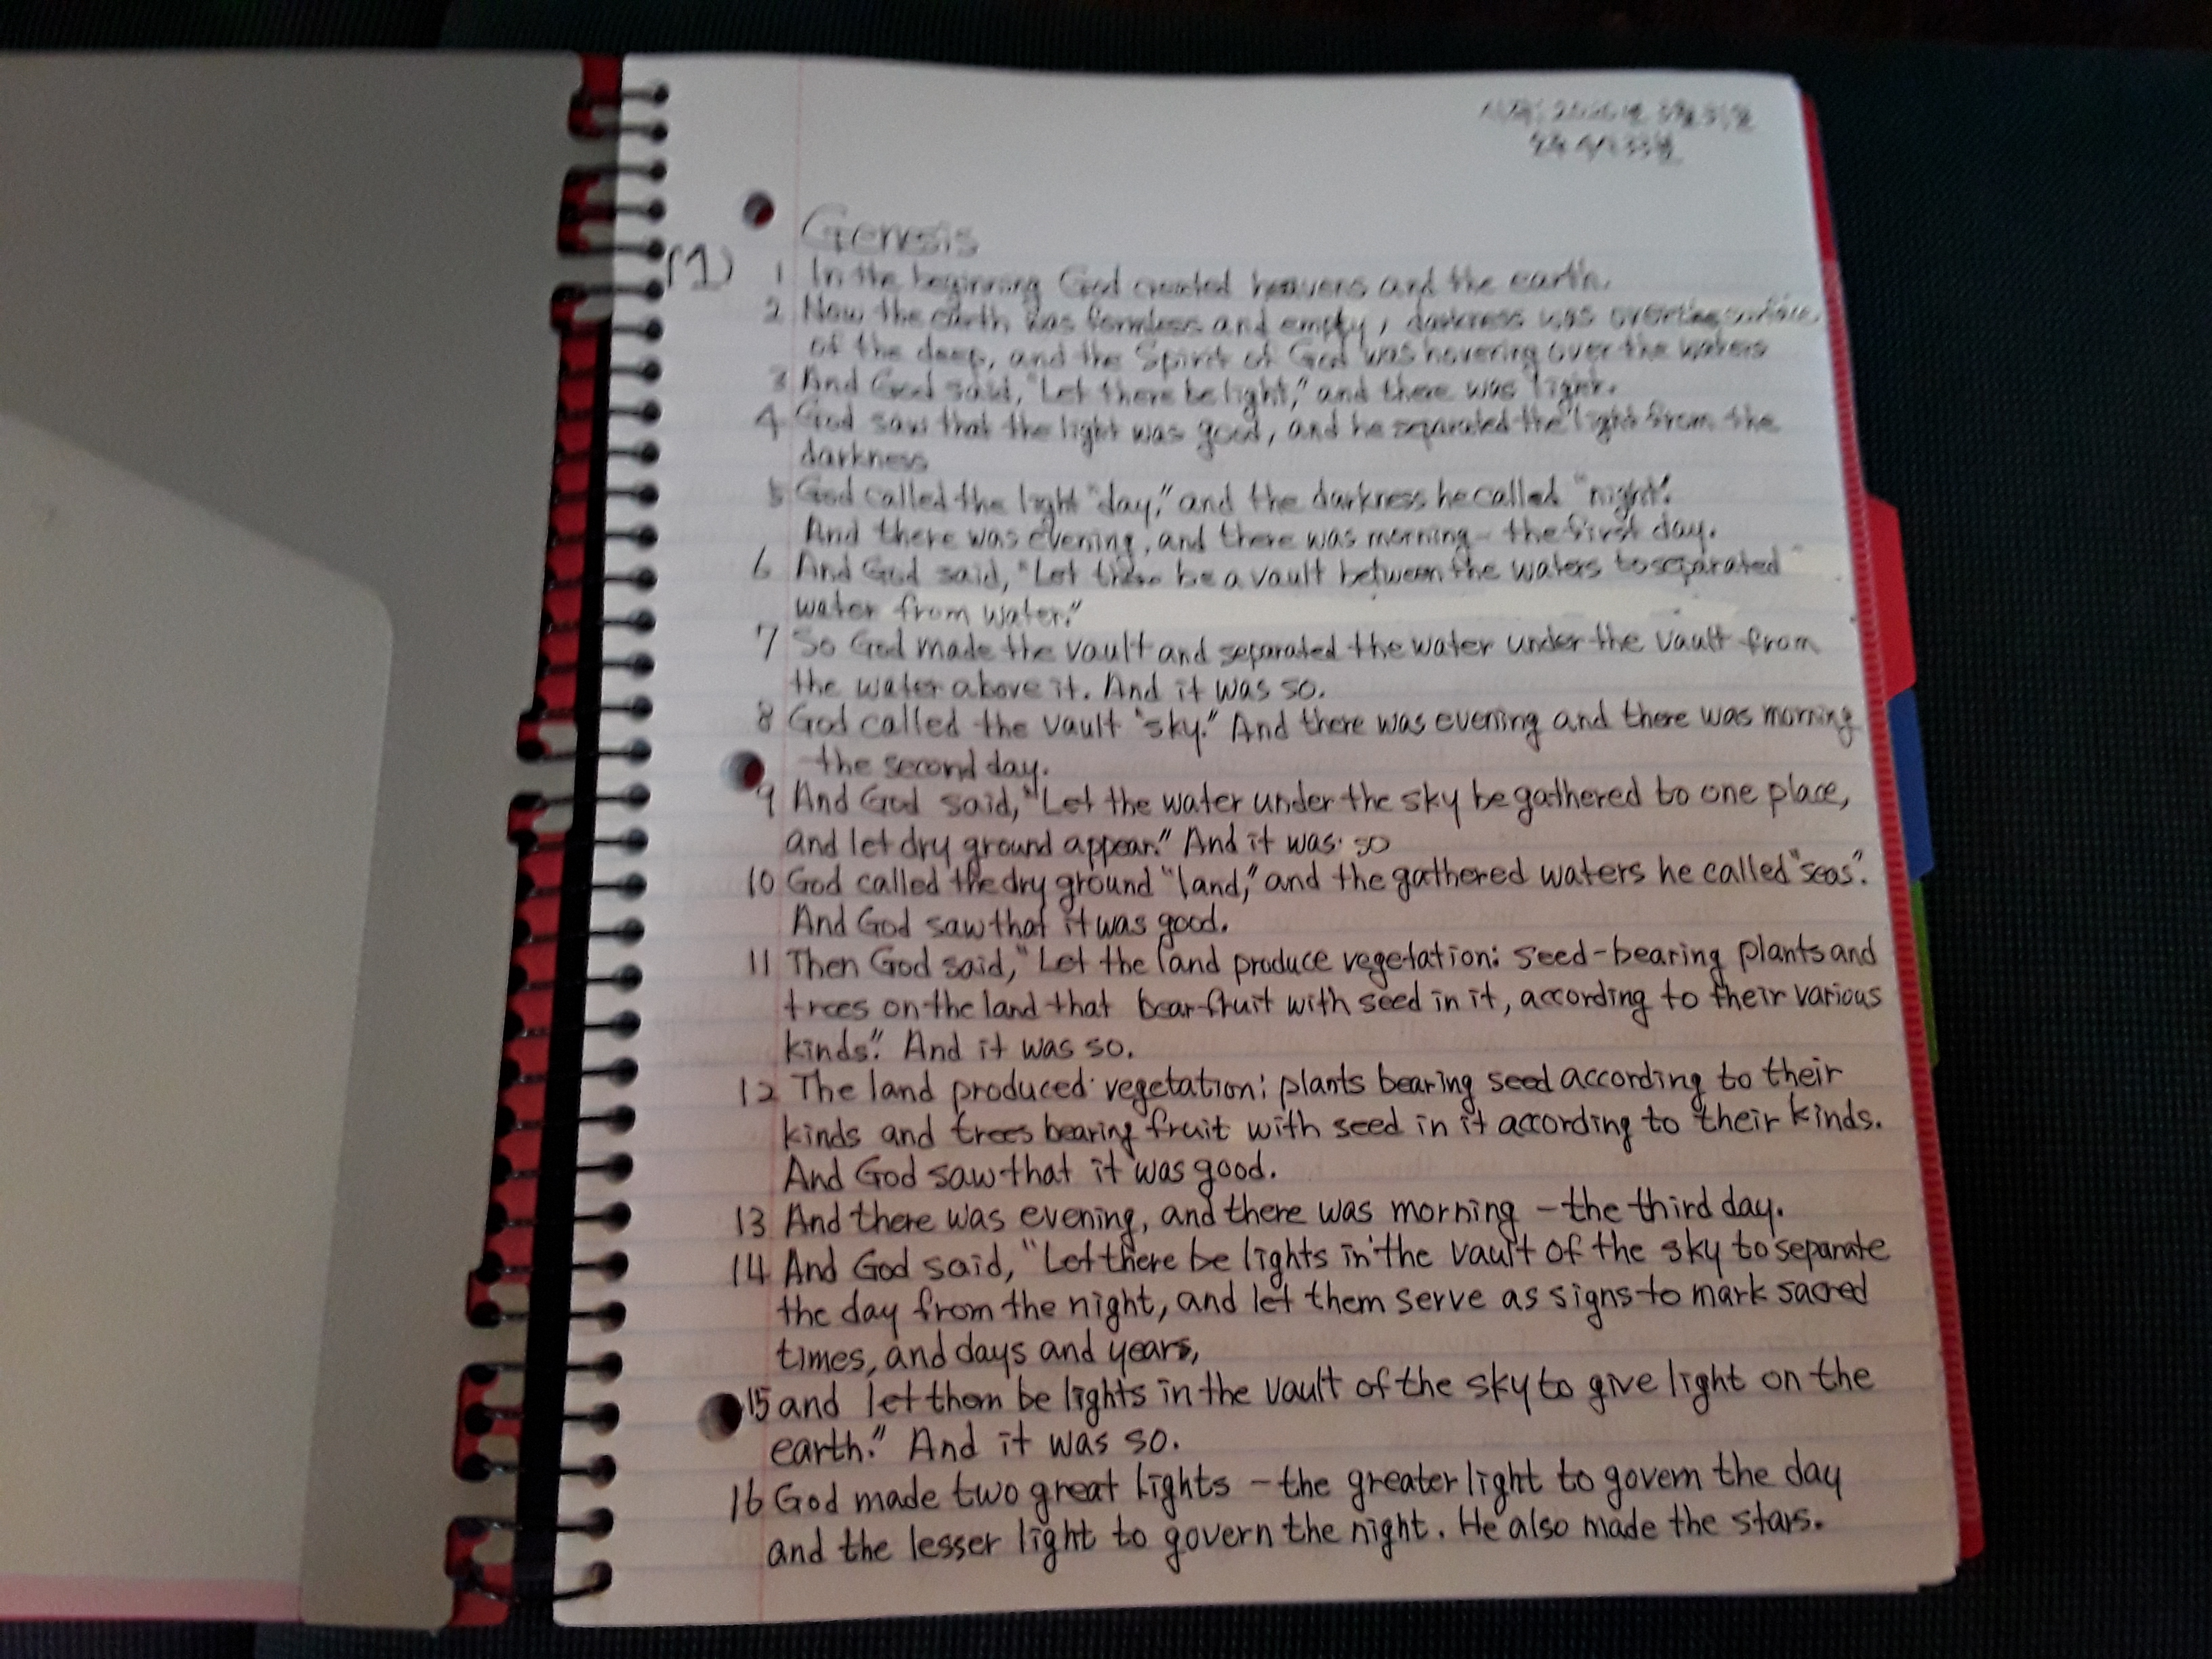 Genesis
(1) 1 In the beginning God created heavens and the earth.
2 Now the earth was formless and empty, darkness was over the surface
of the deep, and the Spirit of God was hovering over the waters
3 And God said, "Let there be light," and there was light.
4 God saw that the light was good, and he separated the light from the
darkness
5 God called the light "day," and the darkness he called "night".
And there was evening, and there was morning - the first day.
6 And God said, "Let there be a vault between the waters to separated
water from water."
7 So God made the vault and separated the water under the vault from
the water above it. And it was so.
8 God called the vault "sky." And there was evening and there was morning
- the second day.
9 And God said, "Let the water under the sky be gathered to one place,
and let dry ground appear." And it was so
10 God called the dry ground "land," and the gathered waters he called "seas".
And God saw that it was good.
11 Then God said, "Let the land produce vegetation: seed-bearing plants and
trees on the land that bear fruit with seed in it, according to their various
kinds." And it was so.
12 The land produced vegetation: plants bearing seed according to their
kinds and trees bearing fruit with seed in it according to their kinds.
And God saw that it was good.
13 And there was evening, and there was morning - the third day.
14 And God said, "Let there be lights in the vault of the sky to separate
the day from the night, and let them serve as signs to mark sacred
times, and days and years,
15 and let them be lights in the vault of the sky to give light on the
earth." And it was so.
16 God made two great lights - the greater light to govern the day
and the lesser light to govern the night. He also made the stars.